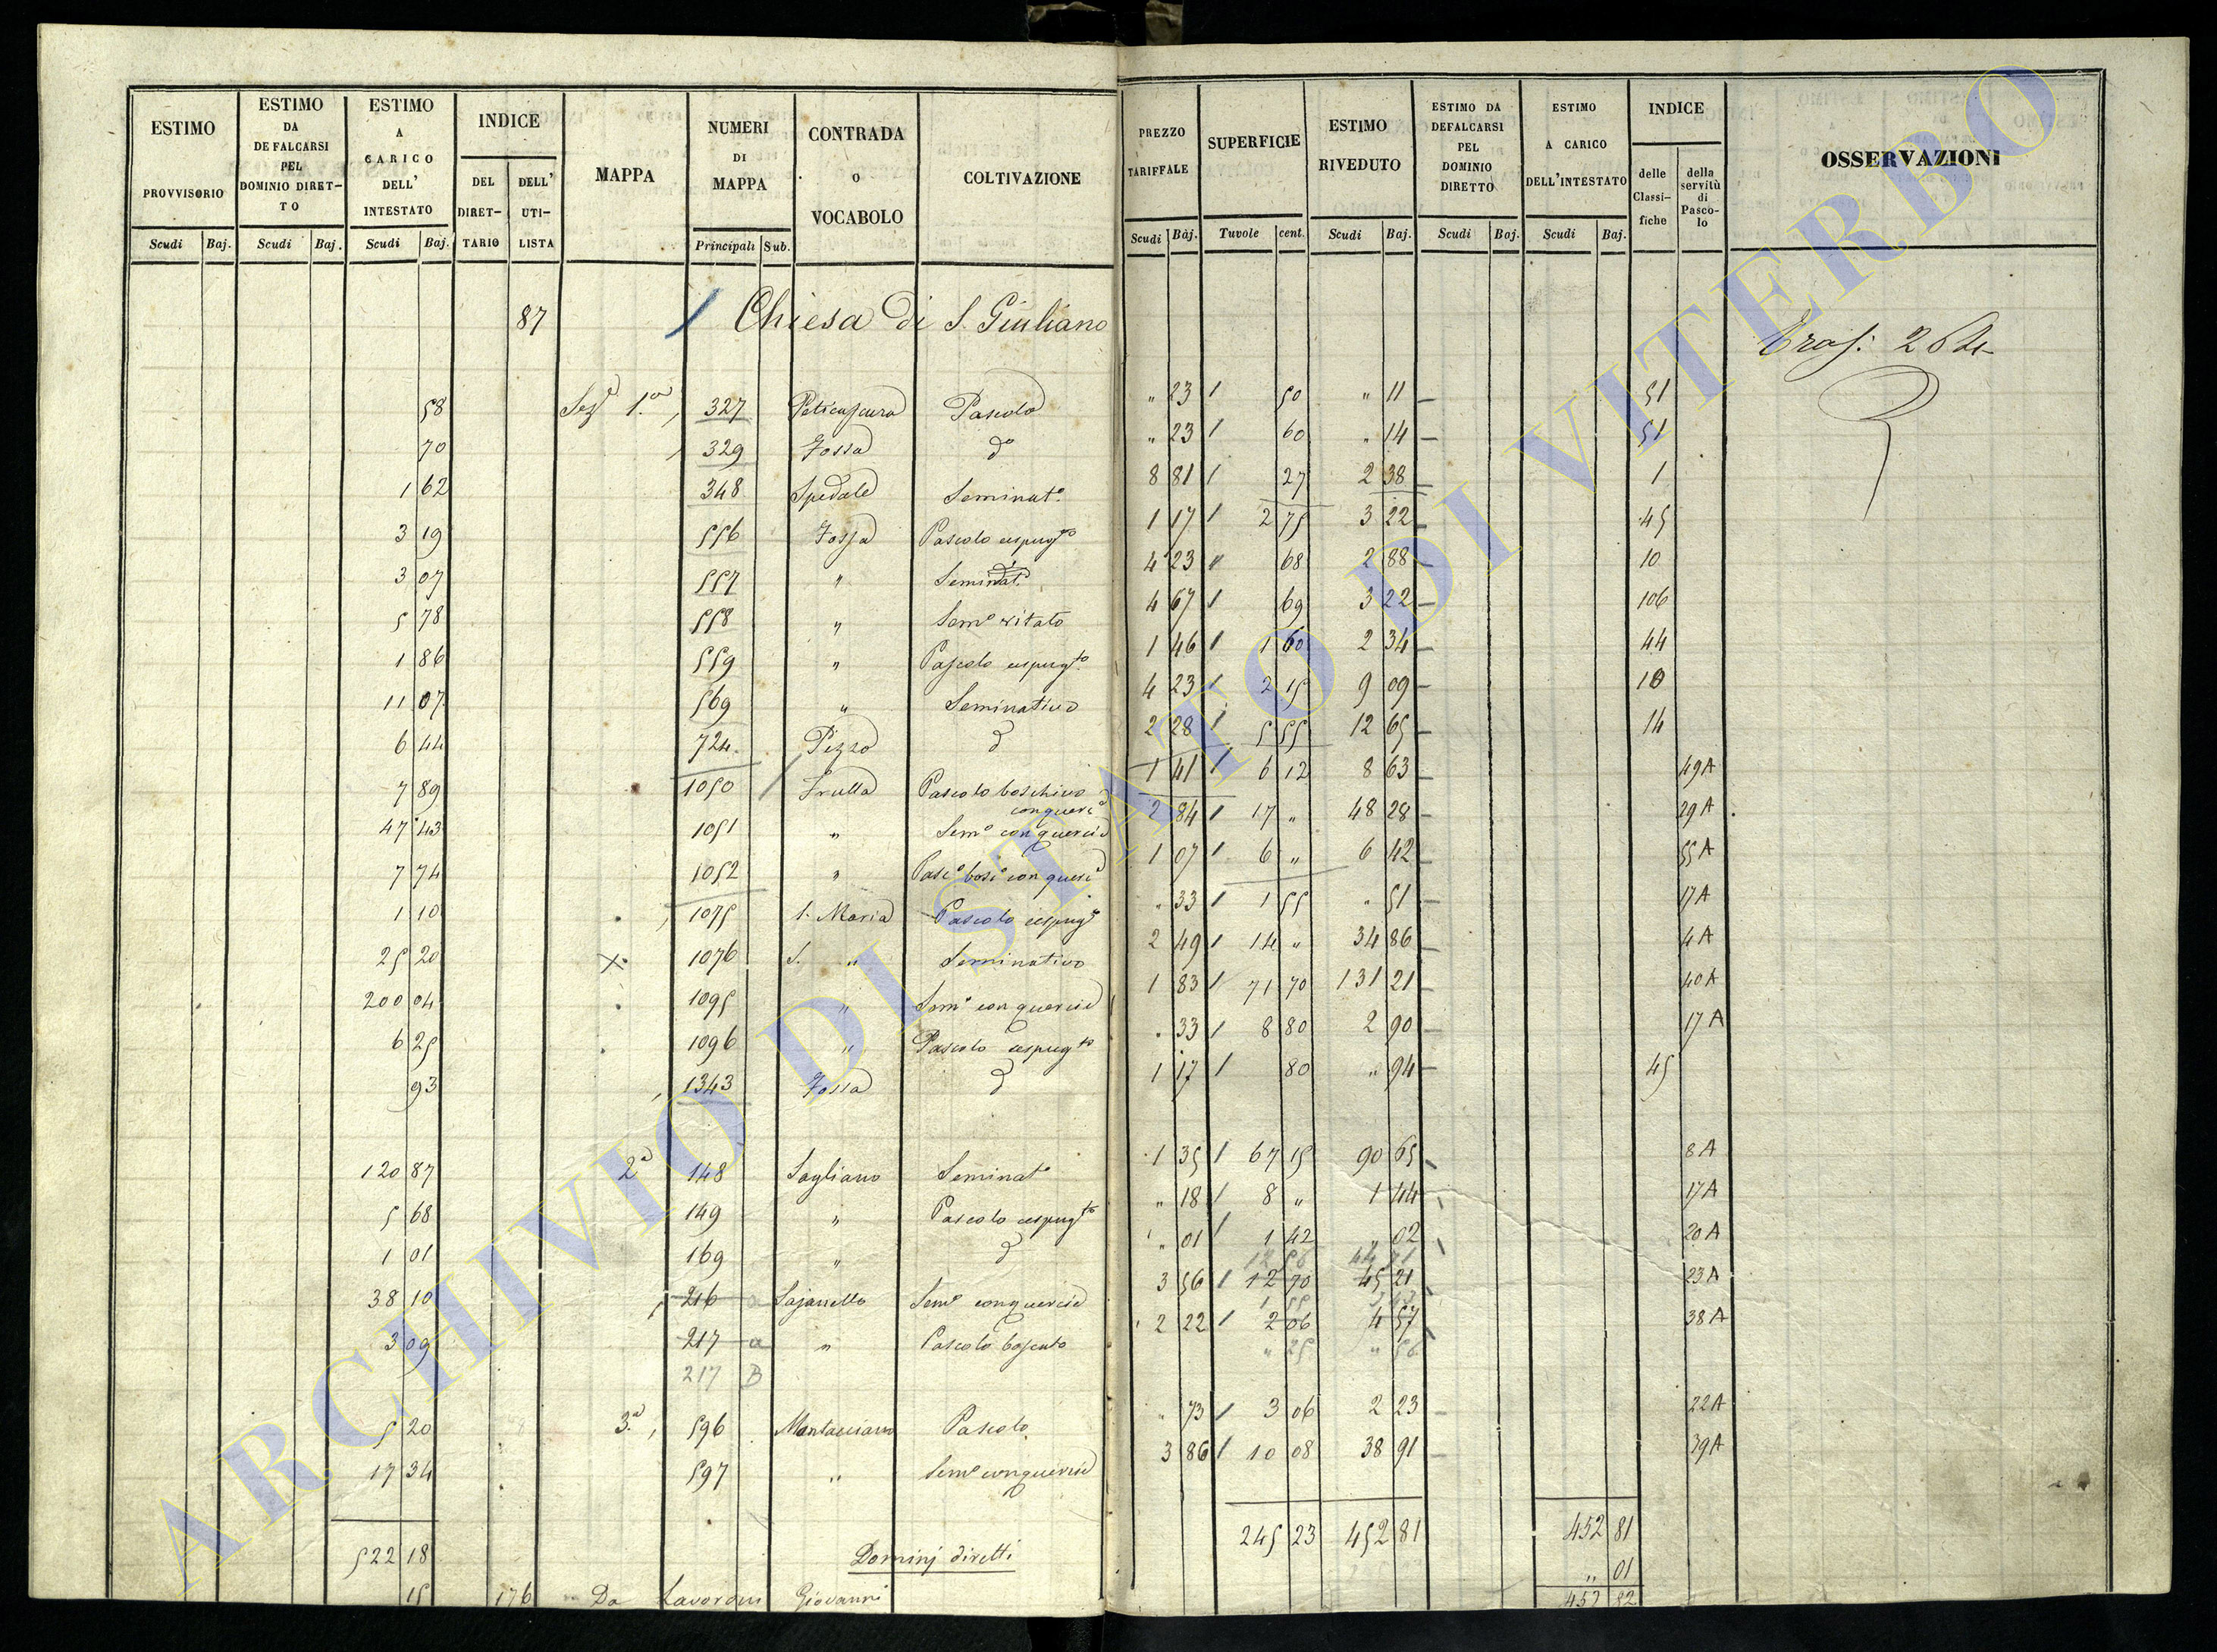 ESTIMO PROVVISORIO Scudi Baj. | ESTIMO DA DEFALCARSI PEL DOMINIO DIRETTO Scudi Baj. | ESTIMO A CARICO DELL' INTESTATO Scudi Baj. | INDICE DEL DIRETTARIO DELL' UTILISTA | MAPPA | NUMERI DI MAPPA Principali Sub. | CONTRADA O VOCABOLO | COLTIVAZIONE | PREZZO TARIFFALE Scudi Baj. | SUPERFICIE Tavole cent. | ESTIMO RIVEDUTO Scudi Baj. | ESTIMO DA DEFALCARSI PEL DOMINIO DIRETTO Scudi Baj. | ESTIMO A CARICO DELL'INTESTATO Scudi Baj. | INDICE delle Classifiche della servitù di Pascolo | OSSERVAZIONI
87 Chiesa di S. Giuliano
58 Sez.e 1.a 327 Pascolo " 23 50 " 11 51
70 329 Fossa do " 23 60 " 14 51
1 62 348 Spedale Seminat.o 8 81 27 2 38 1
3 19 556 Fossa Pascolo cespug.to 1 17 2 75 3 22 45
3 07 557 " Seminat. 4 23 68 2 88 10
5 78 558 " Sem.o vitato 4 67 69 3 22 106
1 86 559 " Pascolo cespug.to 1 46 1 60 2 34 44
11 07 569 " Seminativo 4 23 2 15 9 09 10
6 44 724 Pizzo d 2 28 5 55 12 65 14
7 89 1050 Trulla Pascolo boschivo con querc.e 1 41 6 12 8 63 49A
47 43 1051 " Sem.o con quercie 2 84 17 " 48 28 29A
7 74 1052 " Pasc.o bos.o con querc.e 1 07 6 " 6 42 55A
1 10 1075 S. Maria Pascolo cespug.to " 33 1 55 " 51 17A
25 20 1076 S. " Seminativo 2 49 14 " 34 86 4A
200 04 1095 " Sem.o con quercie 1 83 71 70 131 21 40A
6 25 1096 " Pascolo cespug.to " 33 8 80 2 90 17A
93 1343 Fossa d 1 17 80 " 94 45
120 87 2a 148 Sagliano Seminat.o 1 35 67 15 90 65 8A
5 68 149 " Pascolo cespug.to " 18 8 " 1 44 17A
1 01 169 " d " 01 1 42 " 02 20A
12 56 44 71
38 10 216 a Sem.o con quercie 3 56 12 70 45 21 23A
1 55
3 09 217 a " Pascolo 2 22 2 06 4 57 38A
217 B " 25 " 56
5 20 3.a 596 Pascolo " 73 3 06 2 23 22A
17 34 597 " Sem.o con quercie 3 86 10 08 38 91 39A
522 18 245 23 452 81 452 81
Dominj diretti " 01
15 176 Da Lavoroni Giovanni 452 82
ARCHIVIO DI STATO DI VITERBO